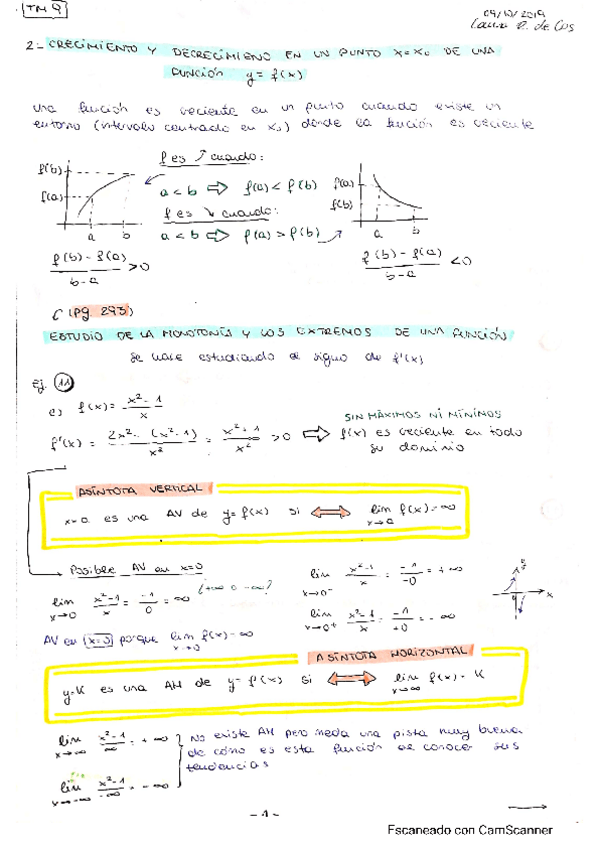 TM 9
09/10/2019
Laura R. de Cos
2- CRECIMIENTO Y DECRECIMIENO EN UN PUNTO x=x₀ DE UNA
FUNCIÓN y = f(x)
una función es creciente en un punto cuando existe un
entorno (intervalo centrado en x₀) donde la función es creciente
f(b)
f(a)
a b
f es ↗ cuando:
a < b ⇨ f(a) < f(b)
f es ↘ cuando:
a < b ⇨ f(a) > f(b)
f(a)
f(b)
a b
f(b) - f(a) / b-a > 0
f(b) - f(a) / b-a < 0
(pg. 293)
ESTUDIO DE LA MONOTONÍA Y LOS EXTREMOS DE UNA FUNCIÓN
se hace estudiando el signo de f'(x)
Ej. 11
e) f(x) = x²-1 / x
f'(x) = 2x² - (x²-1) / x² = x²+1 / x² > 0 ⇨ f(x) es creciente en todo
su dominio
SIN MÁXIMOS NI MÍNIMOS
ASÍNTOTA VERTICAL
x=a es una AV de y=f(x) si ⟺ lim f(x)=∞
x→a
Posible AV en x=0
lim x²-1 / x = -1 / 0 = ∞ (+∞ o -∞?
x→0
lim x²-1 / x = -1 / -0 = +∞
x→0⁻
lim x²-1 / x = -1 / +0 = -∞
x→0⁺
y
x
AV en x=0 porque lim f(x)=∞
x→0
ASÍNTOTA HORIZONTAL
y=K es una AH de y=f(x) si ⟺ lim f(x) = K
x→∞
lim x²-1 / ∞ = +∞
x→∞
lim x²-1 / -∞ = -∞
x→-∞
No existe AH pero me da una pista muy buena
de cómo es esta función al conocer sus
tendencias
- 1 -
Escaneado con CamScanner